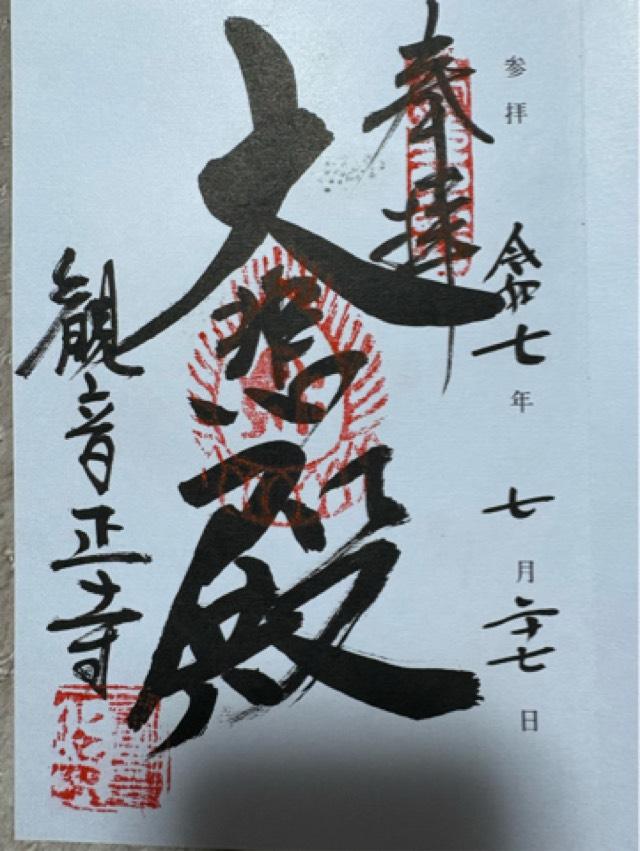 参拝 令和七年 七月二十七日
奉拝
大悲殿
観音正寺